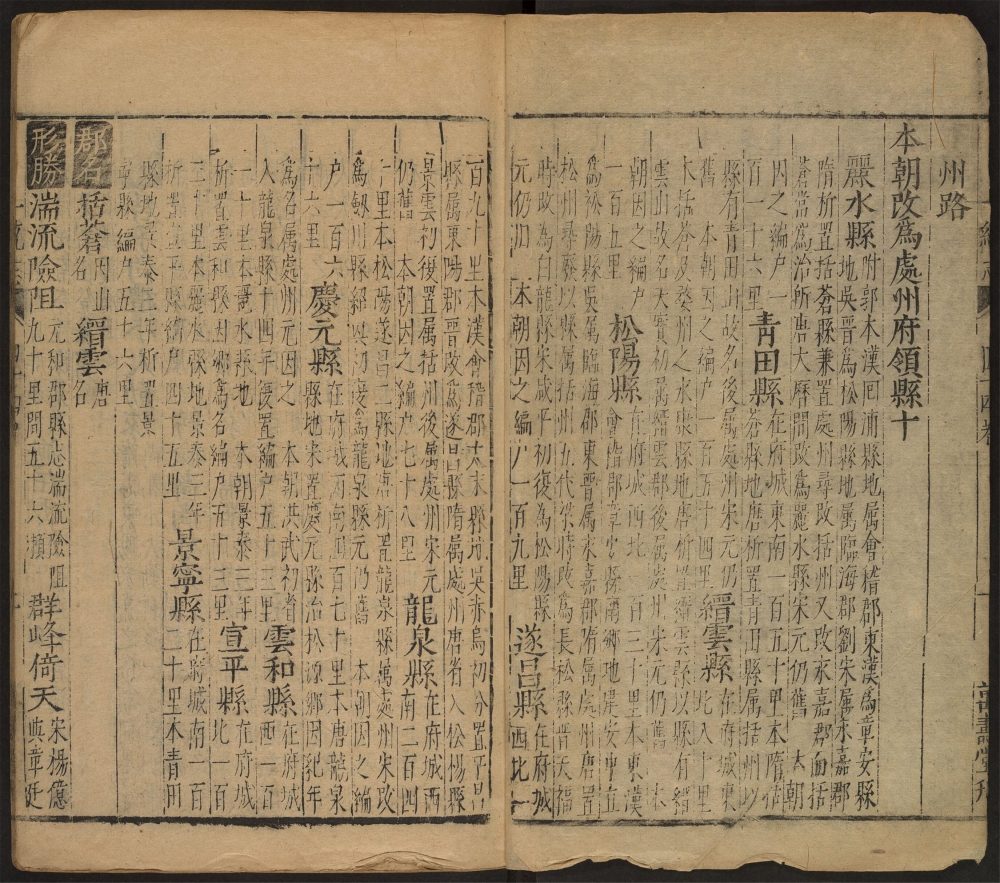 州路
本朝改為處州府領縣十
麗水縣
附郭本漢囬浦縣地属會稽郡東漢為章安縣
地吳晉為松陽縣地属臨海郡劉宋属永嘉郡
隋析置括蒼縣兼置處州尋改括州又改永嘉郡而括
蒼常為治所唐大曆間改為麗水縣宋元仍舊 本朝
因之編户
百一十六里
青田縣
在府城東南一百五十里本隋括
蒼縣地唐析置青田縣属括州以
縣有青田山故名後属處州宋元仍
舊 本朝因之編户一百五十四里
縉雲縣
在府城東
北八十里
本括蒼及婺州之永康縣地唐析置縉雲縣以縣有縉
雲山故名天寶初属縉雲郡後属處州宋元仍舊 本
朝因之編户
一百五里
松陽縣
在府城西北一百二十里本東漢
會稽郡章安縣南鄉地建安中立
為松陽縣吳属臨海郡東晉属永嘉郡隋属處州唐置
松州尋廢以縣属括州五代梁時改為長松縣晉天福
時改為白龍縣宋咸平初復為松陽縣
元仍旧 本朝因之編户一百九里
遂昌縣
在府城
西北一
百九十里本漢會稽郡太末縣地吳赤烏初分置平昌
縣属東陽郡晉改為遂昌縣隋属處州唐省入松陽縣
景雲初復置属括州後属處州宋元
仍舊 本朝因之編户七十八里
龍泉縣
在府城西
南二百四
十里本松陽遂昌二縣地唐析置龍泉縣属處州宋改
為劒川縣紹興初復為龍泉縣元仍舊 本朝因之編
户一百六
十六里
慶元縣
在府城西南四百七十里本唐龍泉
縣地宋置慶元縣治松源鄉因紀年
為名属處州元因之 本朝洪武初省
入龍泉縣十四年復置編户五十三里
雲和縣
在府城
西一百
一十里本麗水縣地 本朝景泰三年
析置雲和縣因鄉為名編户五十三里
宣平縣
在府城
北一百
二十里本麗水縣地景泰三年
析置宣平縣編户四十五里
景寧縣
在府城南一百
二十里本青田
縣地景泰三年析置景
寧縣編户五十六里
郡名
括蒼
因山
名
縉雲
唐
名
形勝
湍流險阻
元和郡縣志湍流險阻
九十里間五十六瀬
群峰倚天
宋楊億
與章廷